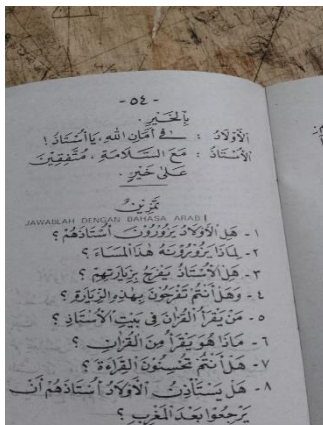 -٥٤-
بِالْخَيْرِ.
الْأَوْلَادُ : فِي أَمَانِ اللهِ، يَا أُسْتَاذُ!
الْأُسْتَاذُ : مَعَ السَّلَامَةِ، مُتَّفِقِيْنَ
عَلَى خَيْرٍ.
تَمْرِيْنٌ
JAWABLAH DENGAN BAHASA ARAB!
١- هَلِ الْأَوْلَادُ يَزُوْرُوْنَ أُسْتَاذَهُمْ؟
٢- لِمَاذَا يَزُوْرُوْنَهُ هٰذَا الْمَسَاءَ؟
٣- هَلِ الْأُسْتَاذُ يَفْرَحُ بِزِيَارَتِهِمْ؟
٤- وَهَلْ أَنْتُمْ تَفْرَحُوْنَ بِهٰذِهِ الزِّيَارَةِ؟
٥- مَنْ يَقْرَأُ الْقُرْآنَ فِى بَيْتِ الْأُسْتَاذِ؟
٦- مَاذَا هُوَ يَقْرَأُ مِنَ الْقُرْآنِ؟
٧- هَلْ أَنْتُمْ تُحْسِنُوْنَ الْقِرَاءَةَ؟
٨- هَلْ يَسْتَأْذِنُ الْأَوْلَادُ أُسْتَاذَهُمْ أَنْ
يَرْجِعُوْا بَعْدَ الْمَغْرِبِ؟